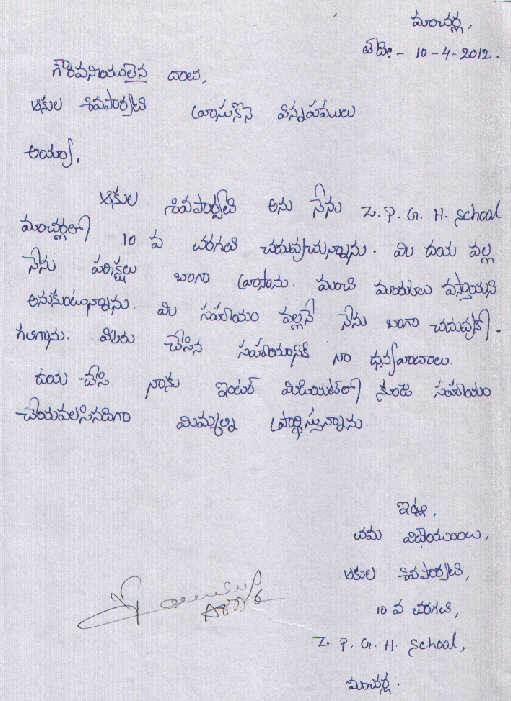 మాచర్ల,
తేది:- 10-4-2012.
గౌరవనీయులైన దాత,
ఆకుల శివపార్వతి వ్రాసుకొనె విన్నపములు
అయ్యా,
ఆకుల శివపార్వతి అను నేను Z. P. G. H. School
మాచర్లలో 10 వ తరగతి చదువుచున్నాను. మీ దయ వల్ల
నేను పరీక్షలు బాగా వ్రాసాను. మంచి మార్కులు వస్తాయని
అనుకుంటున్నాను. మీ సహాయం వల్లనే నేను బాగా చదువుకో-
గలిగాను. మీరు చేసిన సహాయానికి నా ధన్యవాదాలు.
దయ చేసి నాకు ఇంటర్ మీడియట్‌లో కూడా సహాయం
చేయవలసినదిగా మిమ్మల్ని ప్రార్థిస్తున్నాను.
ఇట్లు,
తమ విధేయురాలు,
ఆకుల శివపార్వతి,
10 వ తరగతి,
Z. P. G. H. School,
మాచర్ల.